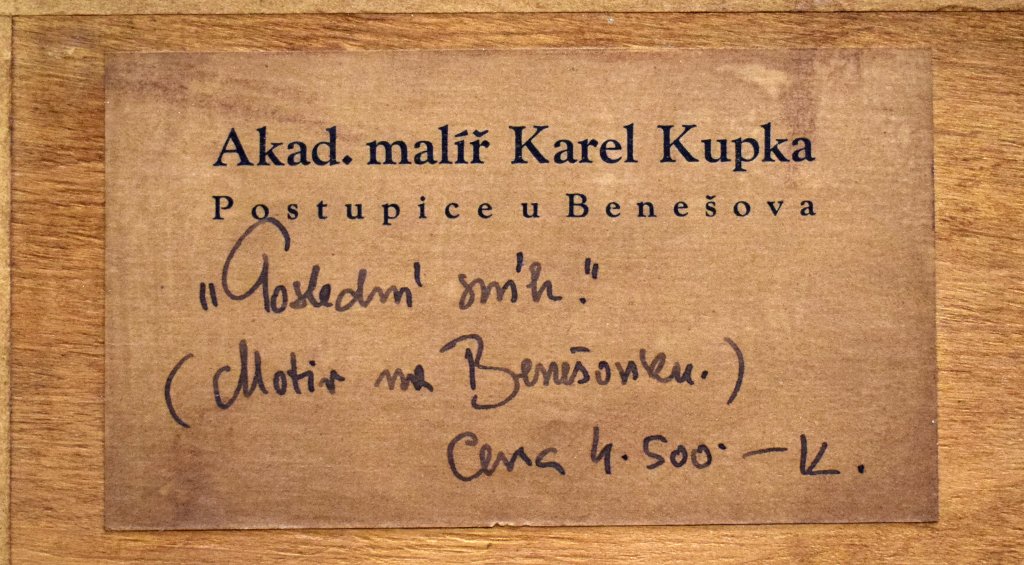 Akad. malíř Karel Kupka
Postupice u Benešova
„Poslední sníh."
(Motiv na Benešovsku.)
Cena 4.500.—K.